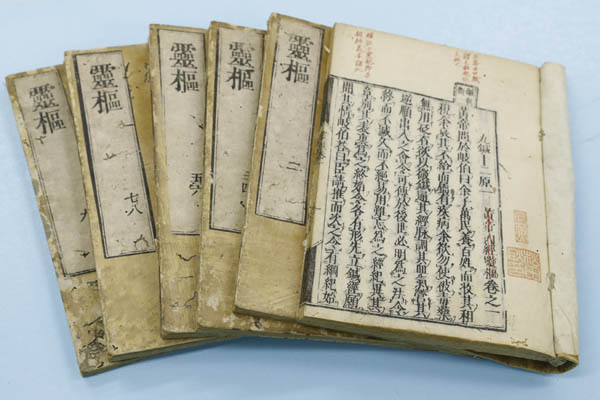 靈樞
九
靈樞
七八
靈樞
五六
靈樞
三四
靈樞
二
靈樞卷之一
九鍼十二原
黃帝問於岐伯曰余子萬民養百姓而收其租
稅余哀其不給而屬有疾病余欲勿使被毒藥
無用砭石欲以微鍼通其經脉調其血氣營其
逆順出入之會令可傳於後世必明爲之法令
終而不滅久而不絕易用難忘爲之經紀異其
章別其表裏爲之終始令各有形先立鍼經願
聞其情岐伯荅曰臣請推而次之令有綱紀始